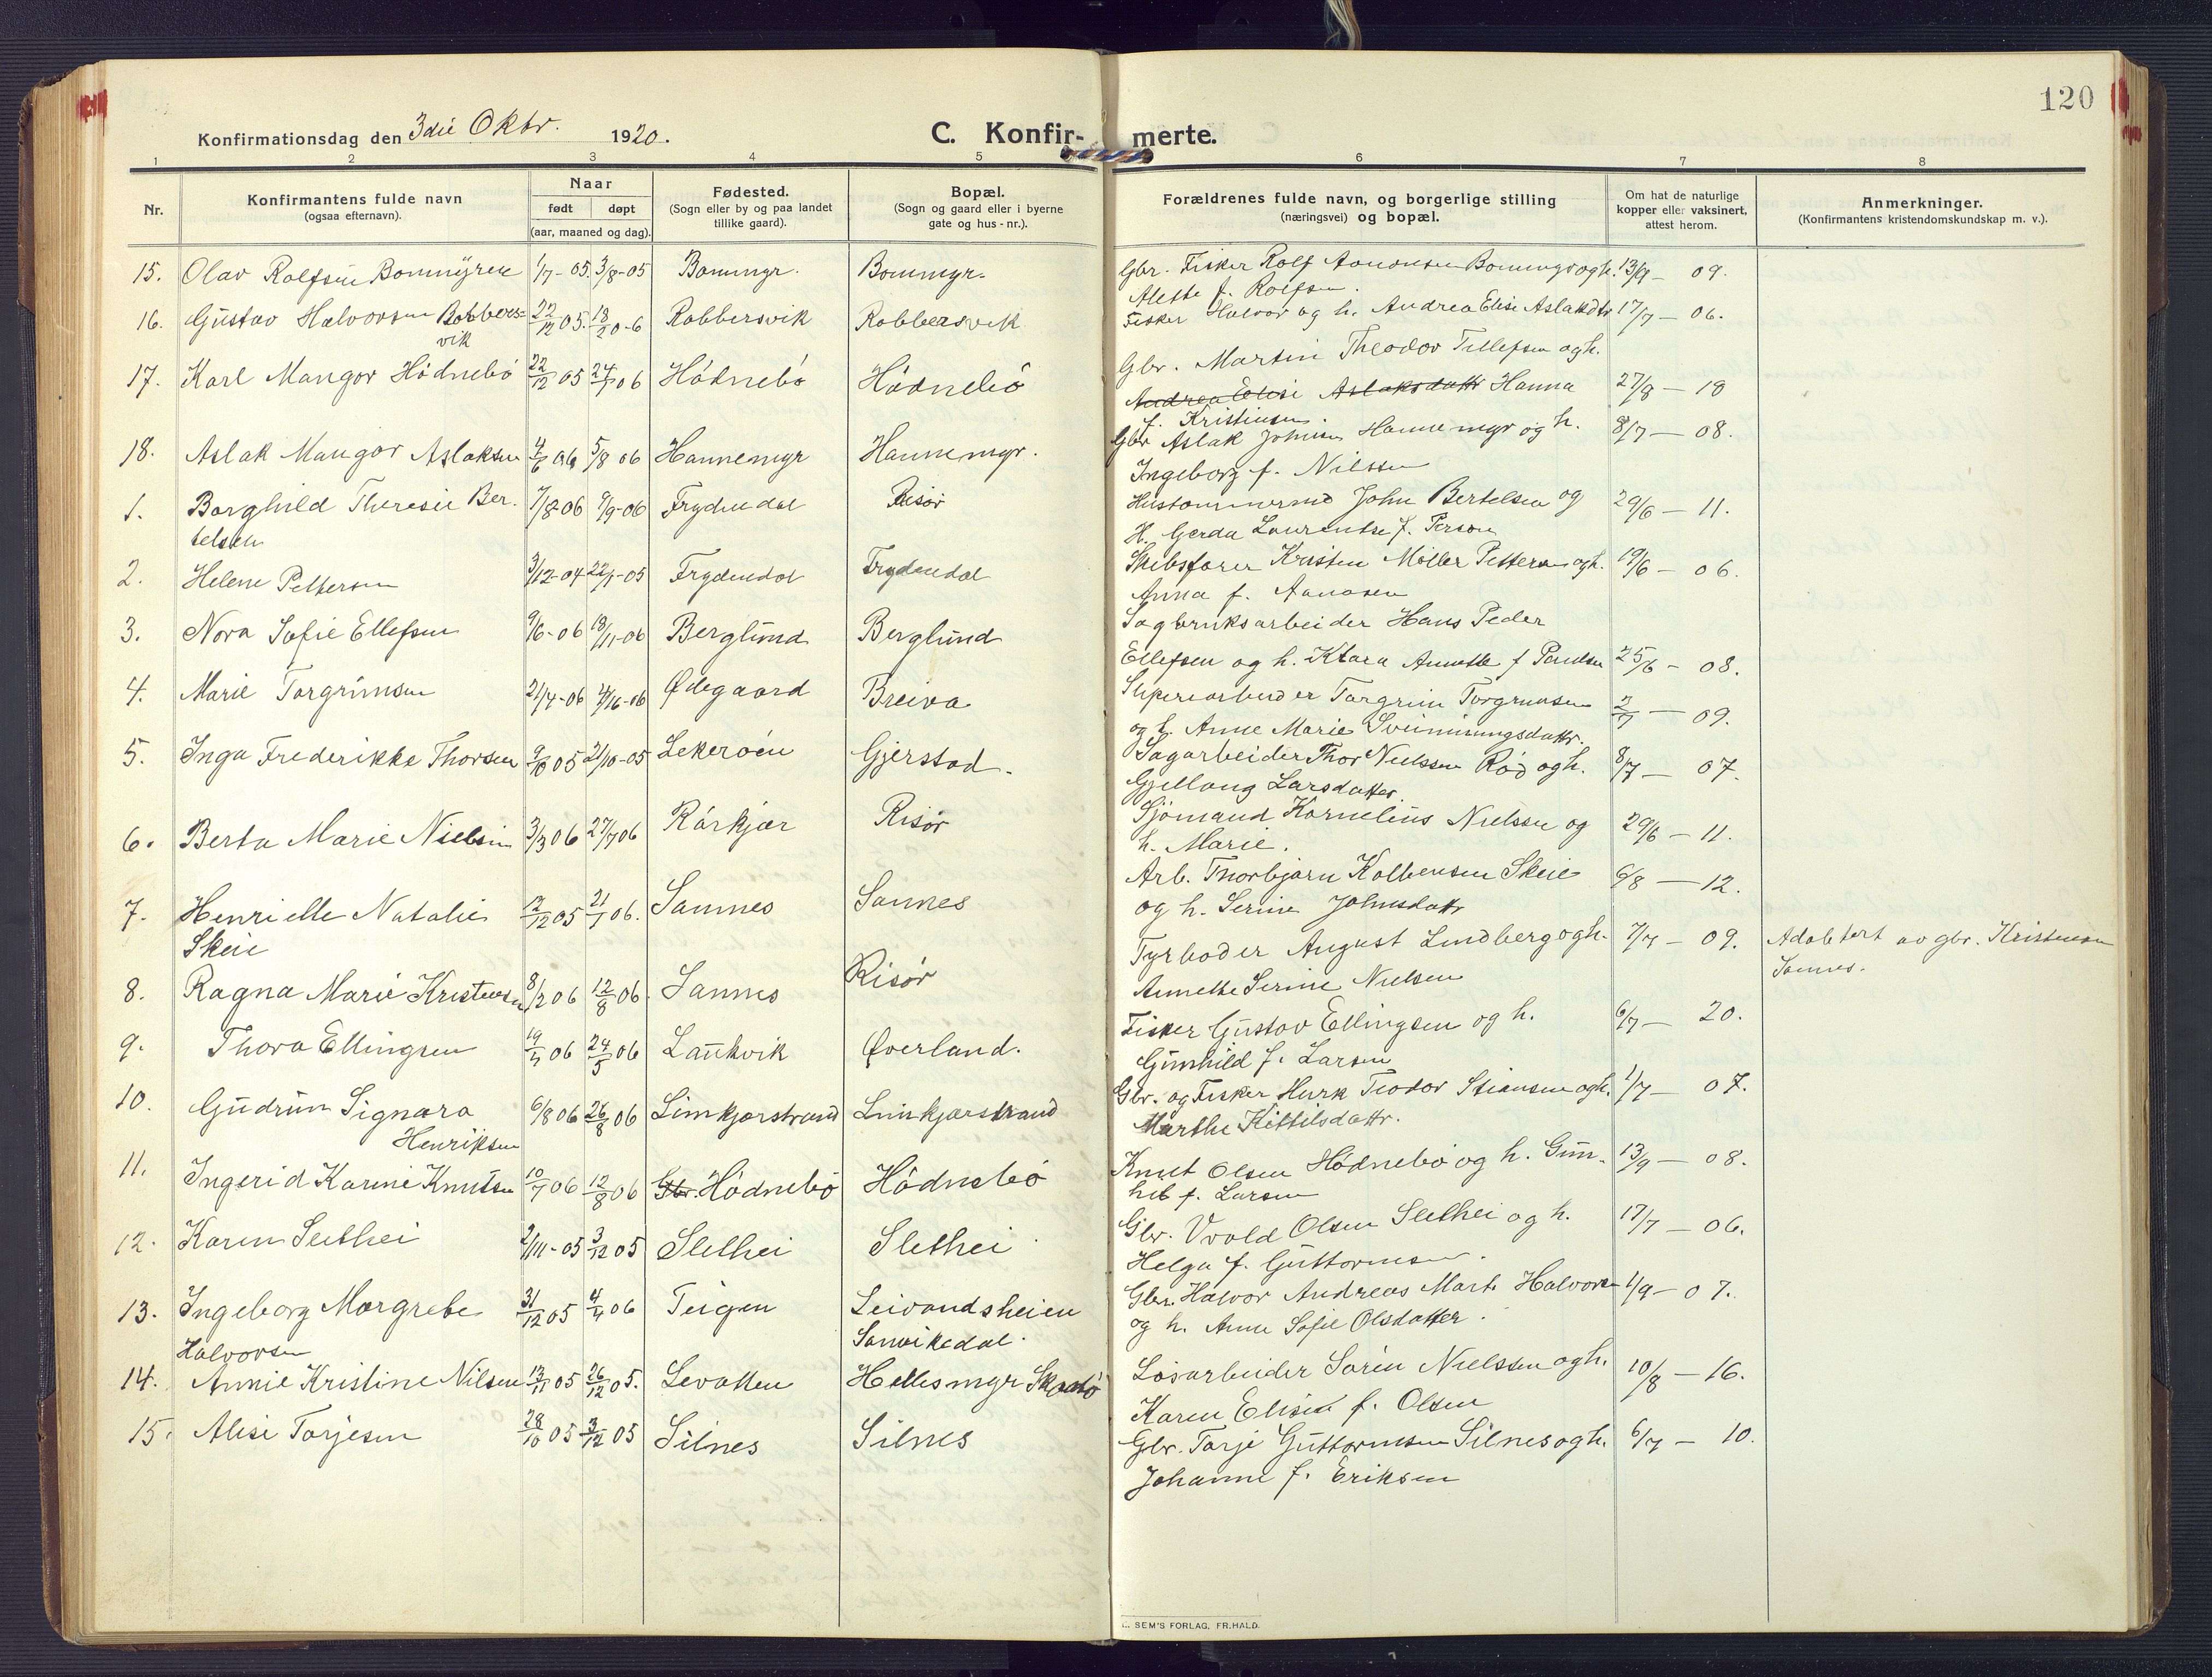 120
Konfirmationsdag den 3die Oktbr. 1920.
C. Konfir- merte.
1 2 3 4 5 6 7 8
Nr.
Konfirmantens fulde navn
(ogsaa efternavn).
Naar
født døpt
(aar, maaned og dag).
Fødested.
(Sogn eller by og paa landet
tillike gaard).
Bopæl.
(Sogn og gaard eller i byerne
gate og hus-nr.).
Forældrenes fulde navn, og borgerlige stilling
(næringsvei) og bopæl.
Om hat de naturlige
kopper eller vaksinert,
attest herom.
Anmerkninger.
(Konfirmantens kristendomskundskap m. v.).
15. Olav Rolfsen Bommyren 1/7-05 3/8-05 Bommyr. Bommyr. Gbr. Fisker Rolf Aanonsen Bommyr og h. 13/9 - 09.
Alette f. Rolfsen.
16. Gustav Halvorsen Robbers= 22/12 05. 18/2 0-6 Robbersvik Robbersvik Fisker Halvor og h. Andrea Elise Aslaksdtr 17/7 - 06.
vik
17. Karl Mangor Hödnebö 22/12 05 24/7 06 Hödnebö Hödnebö Gbr. Martin Theodor Tellefsen og h.
Andrea Elise Aslaksdattr Hanna 27/8 - 18
f. Kristiansen.
18. Aslak Mangor Aslaksen 4/6 06 5/8 06 Hannemyr Hannemyr. Gbr Aslak Johnsen Hannemyr og h. 8/7 - 08.
Ingeborg f. Nilssen
1. Borghild Theresie Ber. 7/8 06 9/9-06 Frydendal Risör Hustømmermd John Bertelsen og 29/6 - 11.
telsen H. Gerda Laurentse f. Person
2. Helene Pettersen 3/12-04 22/1-05 Frydendal Frydendal Skibsfører Kristen Möller Pettersen og h. 19/6 - 06.
Anna f. Aanosen
3. Nora Sofie Ellefsen 9/6-06 18/11-06 Berglund Berglund Sagbruksarbeider Hans Peder
Ellefsen og h. Klara Annette f 25/6 - 08.
4. Marie Torgrimsen 21/4-06 Ødegaard Breiva Sliperiarbeider Torgrim Torgrimsen 2/7 - 09.
og h. Anne Marie Svenningsdattr.
5. Inga Frederikke Thorsen 9/10 05 21/10-05 Lekeröen Gjerstad. Sagarbeider Thor Nielssen Röd og h. 8/7 - 07.
Gjellaug Larsdatter.
6. Berta Marie Nielsen 3/3 06 27/7 06 Rörkjær Risör Sjömand Kornelius Nielssen og 29/6 - 11.
h. Marie.
7. Henriette Natalie 12/12 05 21/1 06. Sannes Sannes Arb. Thorbjörn Kolbensen Skeie 6/8 - 12.
Skeie og h. Serine Johnsdattr
8. Ragna Marie Kristensen 8/2 06 12/8 06. Sannes Risör Fyrböder August Lindberg og h. 7/7 - 09. Adobtert av gbr. Kristensen
Annette Serine Nielsen Sannes.
9. Thora Ellingsen 19/4 06 24/5 06 Laukvik Øverland. Fisker Gustav Ellingsen og h. 6/7 - 20.
Gunhild f. Larsen
10. Gudrun Signora 6/8 06 26/8 06 Limkjærstrand Limkjærstrand Gbr. og Fisker Teodor Stiansen og h. 1/7 - 07.
Henriksen Marthe Kittilsdattr.
11. Ingerid Karine Knutsen 10/7 06 12/8 06 Gbr. Hödnebö Hödnebö Knut Olsen Hödnebö og h. Gun- 13/9 - 08.
hil f. Larsen
12. Karen Slethei 2/11-05 3/12 05 Slethei Slethei Gbr. Vrold Olsen Slethei og h. 17/7 - 06.
Helga f. Guttormsen.
13. Ingeborg Margrete 31/12 05 4/4 06 Teigen Leivandsheien Gbr. Halvor Andreas Mart. Halvorsen 1/9 - 07.
Halvorsen Sanvikedal. og h. Anne Sofie Olsdatter.
14. Annie Kristine Nilsen 13/11 05 26/12 05. Levatten Hellesmyr Skaatö Lösarbeider Sören Nielssen og h. 10/8 - 16.
Karen Elise f. Olsen
15. Alise Torjesen 28/10 05 3/12 05 Silnes Silnes Gbr. Torje Guttormsen Silnes og h. 6/7 - 10.
Johanne f. Eriksen
SEM'S FORLAG, FR.HALD.